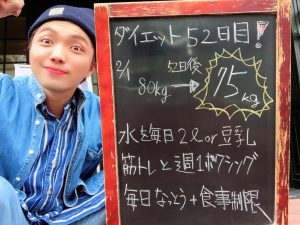 ダイエット52日目!
2/1 52日後
80kg → 75kg
水を毎日2ℓor豆乳
筋トレと週1ボクシング
毎日なっとう+食事制限